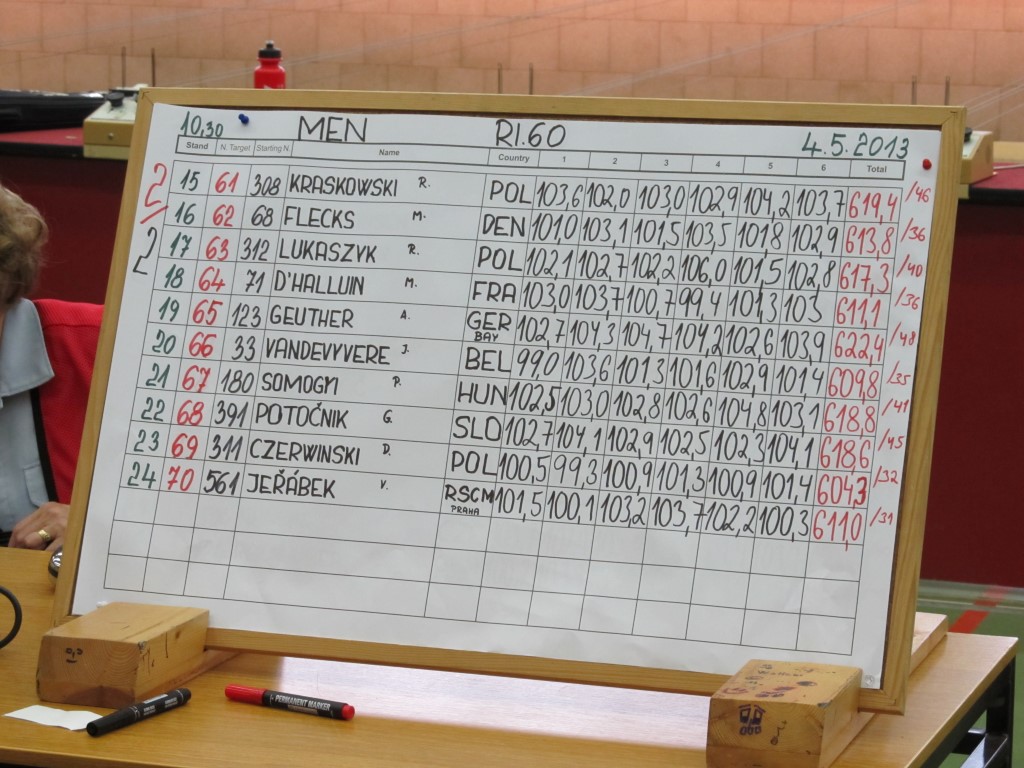 10,30 MEN RI.60 4.5.2013
Stand N. Target Starting N. Name Country 1 2 3 4 5 6 Total
2 15 61 308 KRASKOWSKI R. POL 103,6 102,0 103,0 102,9 104,2 103,7 619,4 /46
16 62 68 FLECKS M. DEN 101,0 103,1 101,5 103,5 101,8 102,9 613,8 /36
2 17 63 312 LUKASZYK R. POL 102,1 102,7 102,2 106,0 101,5 102,8 617,3 /40
18 64 71 D'HALLUIN M. FRA 103,0 103,7 100,7 99,4 101,3 103 611,1 /36
19 65 123 GEUTHER A. GER BAY 102,7 104,3 104,7 104,2 102,6 103,9 622,4 /48
20 66 33 VANDEVYVERE J. BEL 99,0 103,6 101,3 101,6 102,9 101,4 609,8 /35
21 67 180 SOMOGYI P. HUN 102,5 103,0 102,8 102,6 104,8 103,1 618,8 /41
22 68 391 POTOČNIK G. SLO 102,7 104,1 102,9 102,5 102,3 104,1 618,6 /45
23 69 311 CZERWINSKI D. POL 100,5 99,3 100,9 101,3 100,9 101,4 604,3 /32
24 70 561 JEŘÁBEK V. RSCM PRAHA 101,5 100,1 103,2 103,7 102,2 100,3 611,0 /31
PERMANENT MARKER